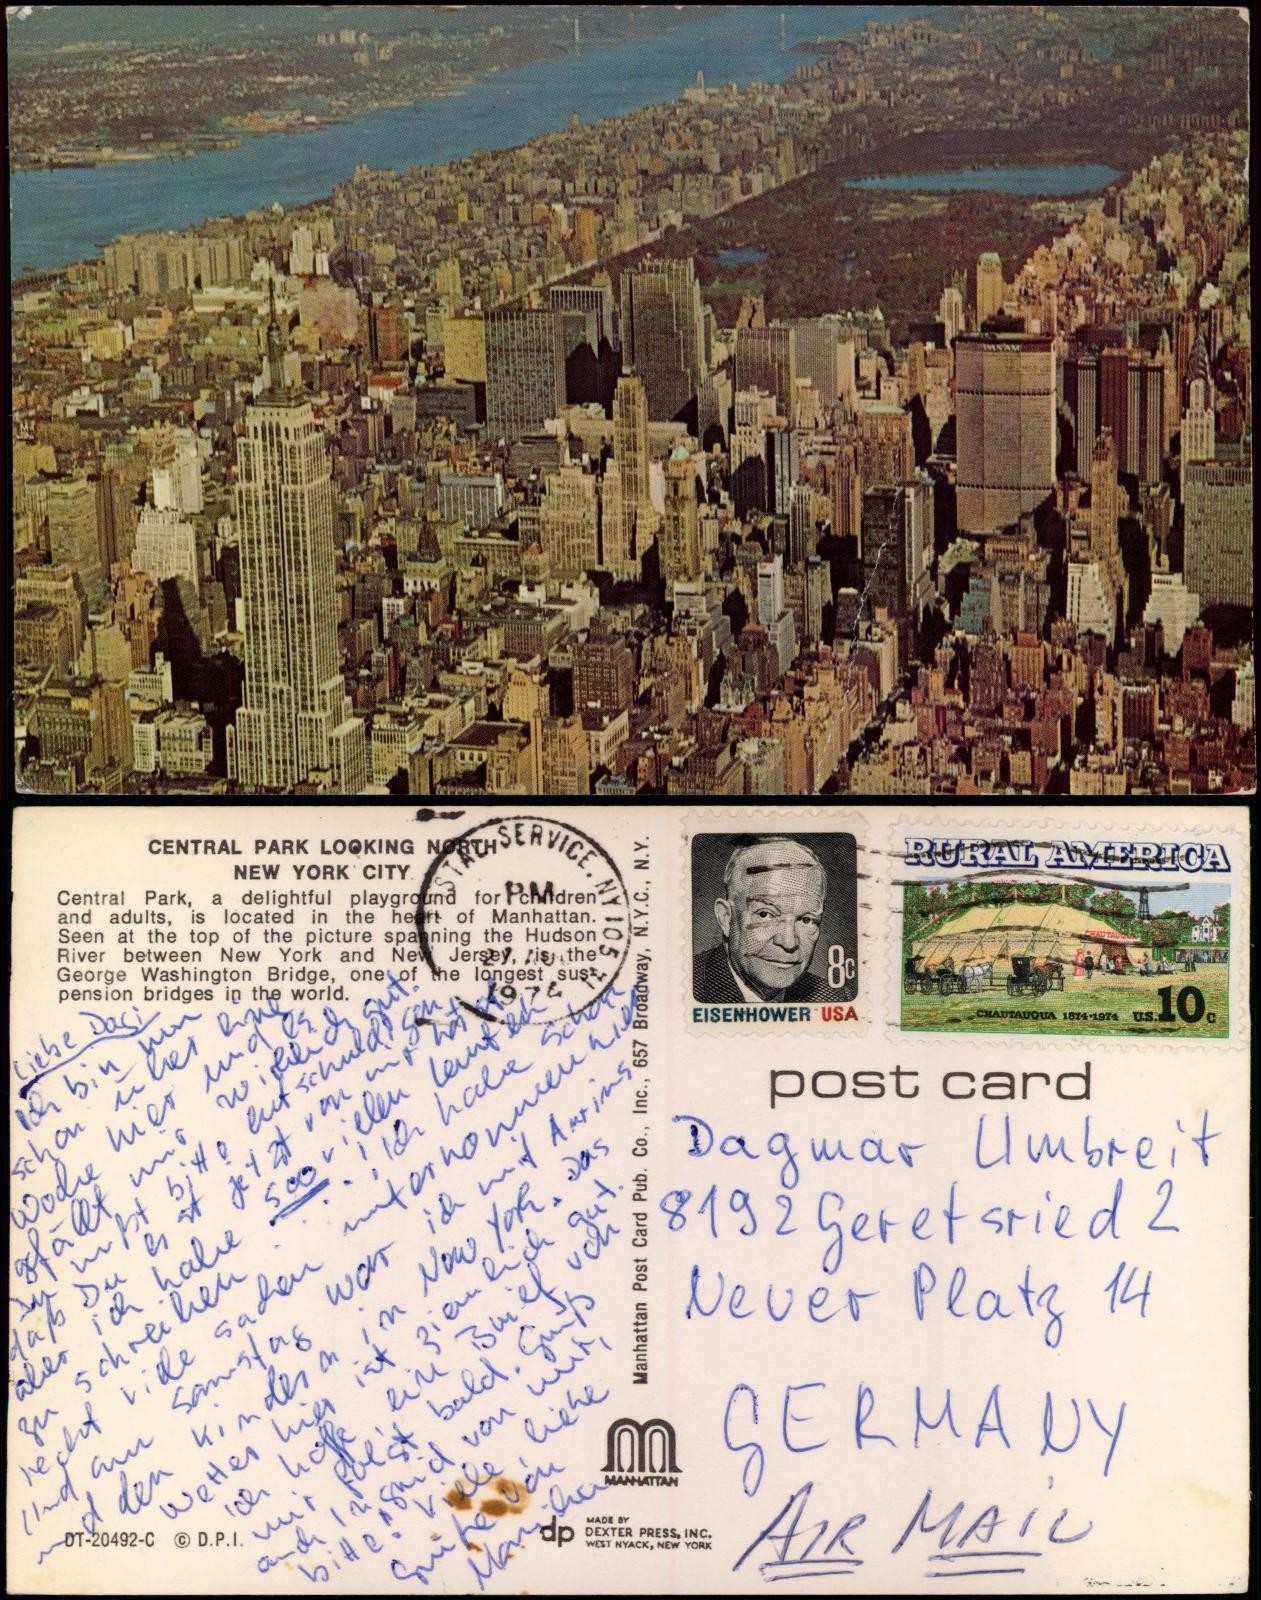 CENTRAL PARK LOOKING NORTH
NEW YORK CITY
Central Park, a delightful playground for children
and adults, is located in the heart of Manhattan.
Seen at the top of the picture spanning the Hudson
River between New York and New Jersey, is the
George Washington Bridge, one of the longest sus-
pension bridges in the world.
POSTAL SERVICE, NY 105
PM
1974
EISENHOWER USA
8c
RURAL AMERICA
CHAUTAUQUA
CHAUTAUQUA 1874·1974 U.S. 10c
post card
Liebe Dagi
Ich bin nun
schon über eine
Woche hier und es
gefällt mir wirklich gut.
Du mußt bitte entschuldigen
daß Du erst jetzt von mir hörst
aber ich habe soo vielen Leuten
zu schreiben... Ich habe schon
recht viele Sachen unternommen
Und am Samstag war ich mit
und den Kindern in New York. Das
Wetter hier ist ziemlich gut.
ich hoffe ein Brief von
mir folgt bald. Grüß
auch Ingrid von mir,
bitte. Viele liebe
Grüße von
Manhattan Post Card Pub. Co., Inc., 657 Broadway, N.Y.C., N.Y.
Dagmar Umbreit
8192 Geretsried 2
Neuer Platz 14
GERMANY
AIR MAIL
MANHATTAN
DT-20492-C © D.P.I.
dp MADE BY
DEXTER PRESS, INC.
WEST NYACK, NEW YORK